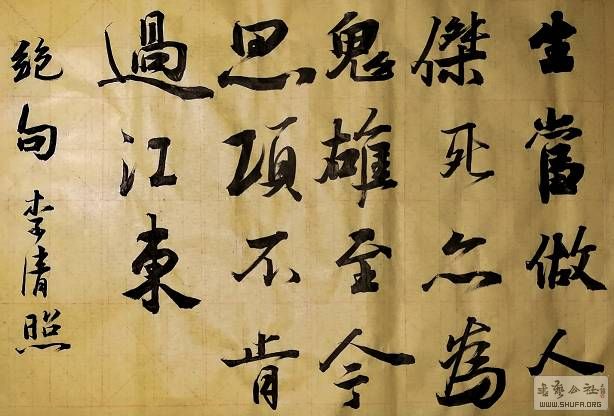 生當做人
傑死亦為
鬼雄至今
思項不肯
過江東
絕句 李清照
書藝公社
WWW.SHUFA.ORG